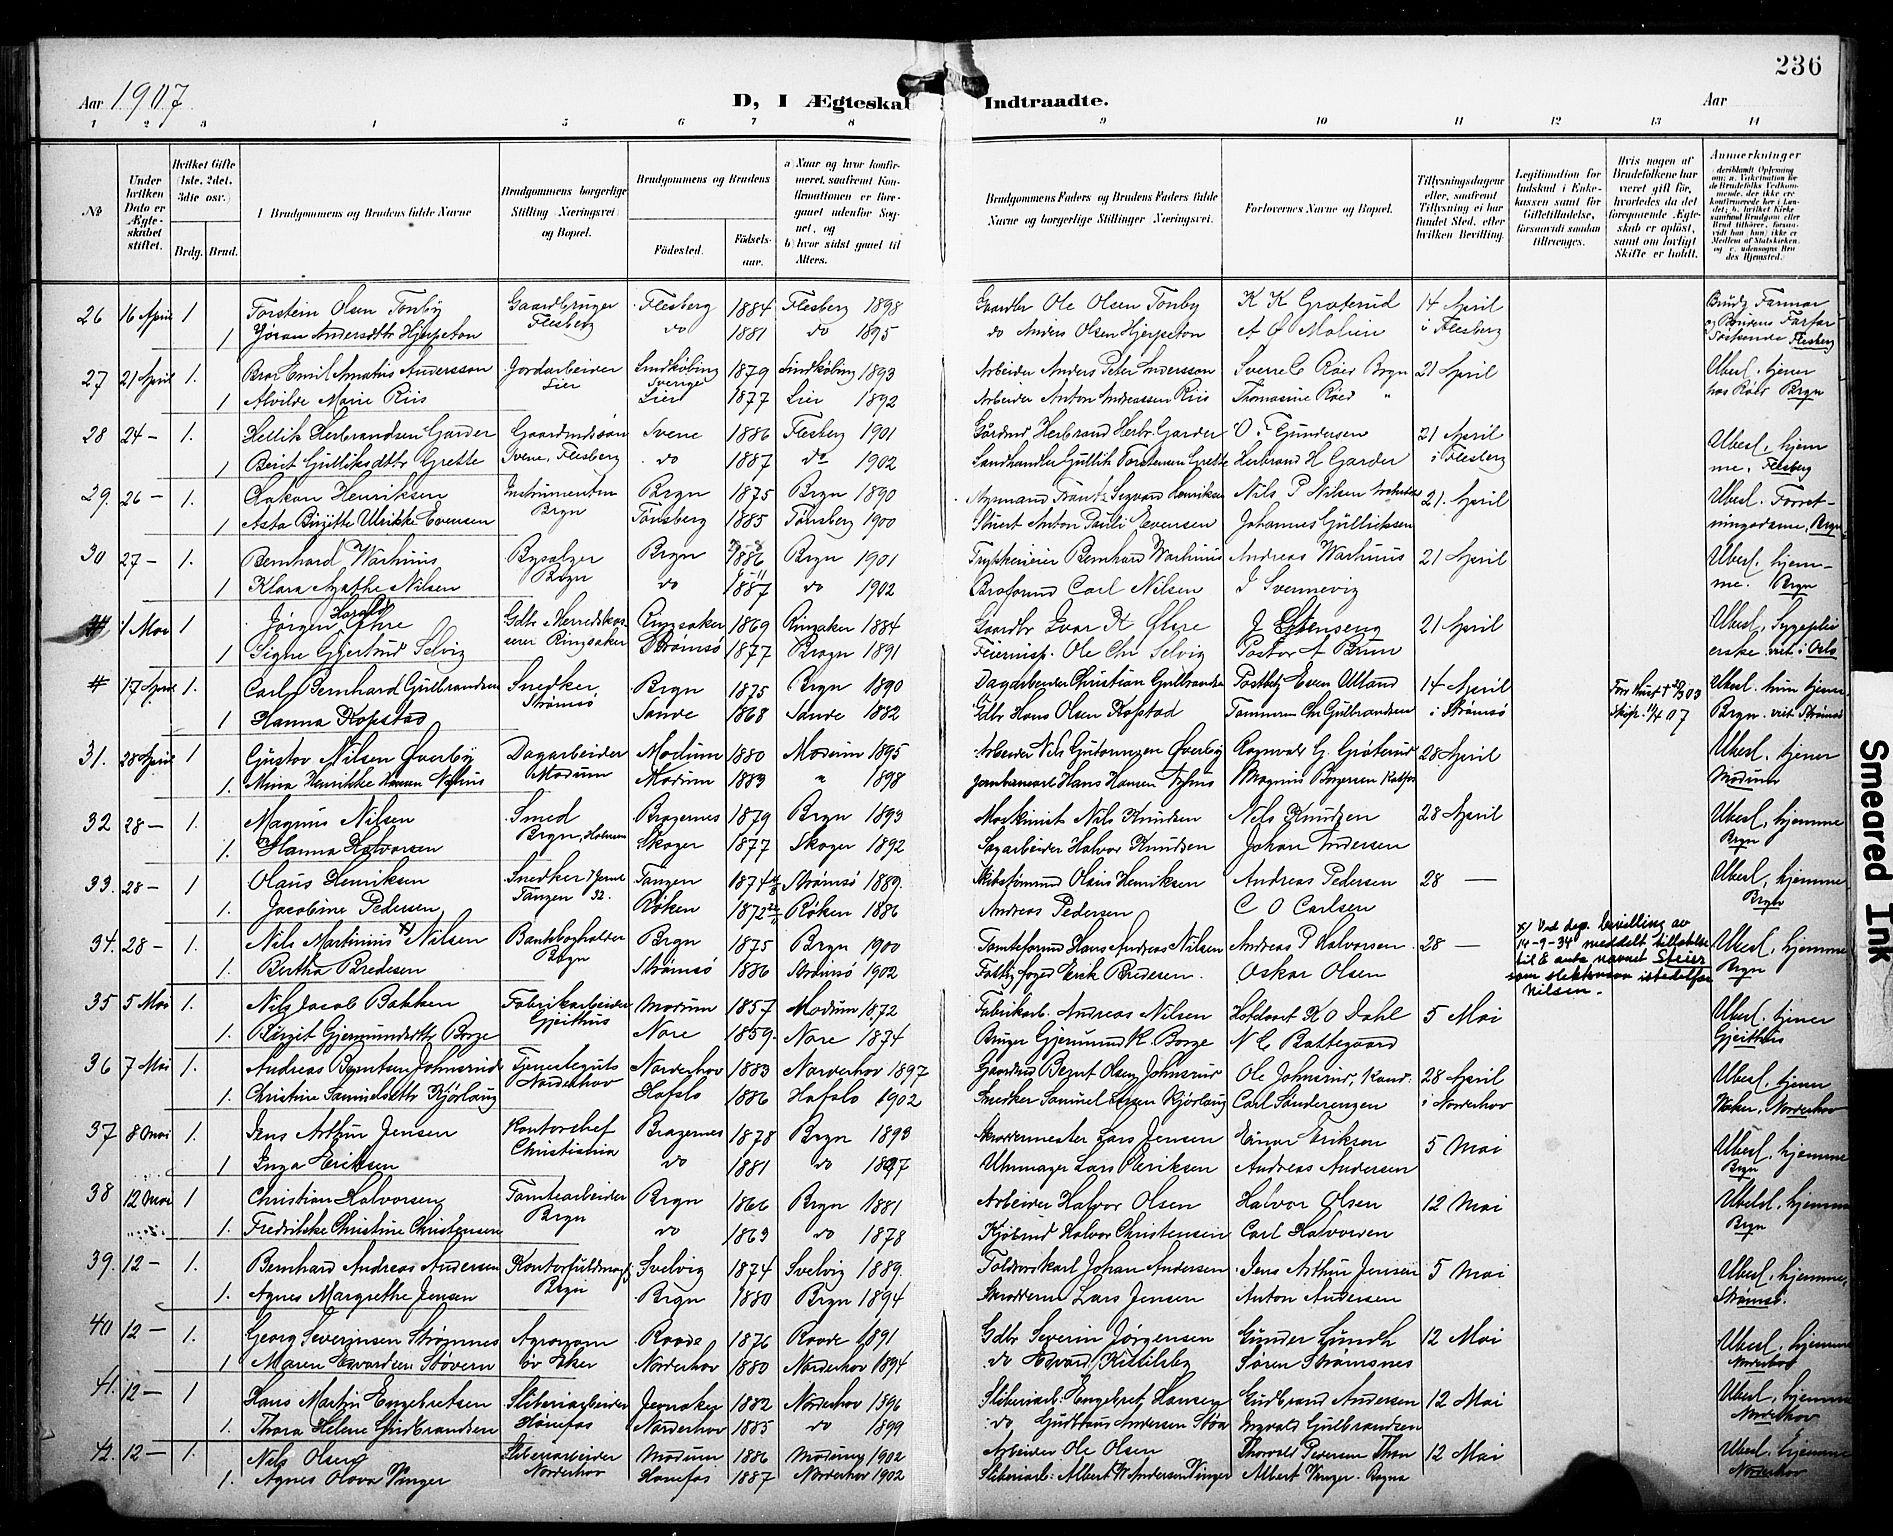 236
Aar 1907
D, I Ægteskab Indtraadte.
Aar
1 2 3 4 5 6 7 8 9 10 11 12 13 14
No
Under hvilken Dato er Ægteskabet stiftet.
Hvilket Gifte (1ste, 2det, 3die osv.)
Brdg. Brud.
1 Brudgommens og Brudens fulde Navne
Brudgommens borgerlige Stilling (Næringsvei) og Bopæl.
Brudgommens og Brudens
Fødested.
Fødselsaar.
a) Naar og hvor konfirmeret, saafremt Konfirmationen er foregaaet udenfor Sognet, og
b) hvor sidst gaaet til Alters.
Brudgommens Faders og Brudens Faders fulde Navne og borgerlige Stillinger (Næringsvei).
Forlovernes Navne og Bopæl.
Tillysningsdagene eller, saafremt Tillysning ei har fundet Sted, efter hvilken Bevilling.
Legitimation for Indskud i Enkekassen samt for Giftetilladelse, forsaavidt saadan tiltrænges.
Hvis nogen af Brudefolkene har været gift før, hvorledes da det foregaaende Ægteskab er opløst, samt om lovligt Skifte er holdt.
Anmerkninger
26 16 April 1 Torstein Olsen Tonby Gaardbruger Flesberg Flesberg 1884 Flesberg 1898 Gaardbr Ole Olsen Tonby K K Grøterud 14 April i Flesberg
1 Jøran Andersdtr Hjerpeton do 1881 do 1895 do Anders Olsen Hjerpeton Flesberg
27 21 April 1. Bror Emil Amatus Andersson Jordarbeider Lier Lindkøbing Sverige 1879 Lindkøbing 1893 Arbeider Anders Peter Andersson Sverre C Røer Brgn 21 April Ubesl. tjener
1 Alvilde Marie Riis Lier 1877 Lier 1892 Arbeider Anton Andreassen Riis Thomasine Røed " hos Røer Brgn
28 24 - 1. Kellik Herbrandsen Garder Gaardmdssøn Svene, Flesberg Svene 1886 Flesberg 1901 Gårdmd Herbrand Herbr. Garder O T Gundersen 21 April i Flesberg Ubesl. hjemme.
1 Berit Gulliksdtr Grette do 1887 do 1902 Landhandler Gullik Torstensen Grette Herbrand H Garder Flesberg
29. 26 - 1. Haakon Henriksen Instrumentm Brgn Brgn 1875 Brgn 1890 Henriksen Nils P Nilsen 21. April Ubesl. Forretningsdame, Brgn
1 Asta Birgitte Ulrikke Evensen Tønsberg 1885 Tønsberg 1900 Stuert Anton Pauli Evensen Johannes Gulliksen
30 27 - 1. Bernhard Warhuus Bysælger Brgn Brgn 1886 Brgn 1901 Trykkerieier Bernhard Warhuus Andreas Warhuus 21 April Ubesl. hjemme. Brgn
1 Klara Agathe Nilsen do 1887 do 1902 Braförmd Carl Nilsen J Svennevig
1 Mai 1 Jørgen Harald Øhre Gdbr & Herredskasserer Ringsaker Ringsaker 1869 Ringsaker 1884 Gaardbr Ivar K Øhre J Stenseng 21 April Ubesl, Sygepleierske vist i Oslo
1 Signe Gjertrud Selvig Strømsø 1877 Bragn 1891 Feiermsp. Ole Chr Selvig Pastor A Brun
17 April 1. Carl Bernhard Gulbrandsen Snedker, Strømsø Brgn 1875 Brgn 1890 Dagarbeider Christian Gulbrandsen Postbtj Even Ulland 14 April i Strømsø
1 Hanna Kopstad Sande 1868 Sande 1882 Gdbr Hans Olsen Kopstad Tømmerm Chr Gulbrandsen Skifte 11/4 07 Brgn. vist Strømsø
31. 28 April 1 Gustav Nilsen Øverby Dagarbeider Modum Modum 1880 Modum 1895 Arbeider Nils Guttormsen Øverby Ragnvald G. Grøterud 28 April Ubesl. tjener
1. Mina Henrikke Hansen Nyhus Modum 1883 " 1898 Jernbanearb Hans Hansen Nyhus Magnus Borgersen Modum
32 28 - 1. Magnus Nilsen Smed Brgn, Holmen Bragernes 1879 Brgn 1893 Maskinist Nils Knudsen Nils Knudzen 28 April Ubesl, hjemme Brgn
1. Hanna Halvorsen Skoger 1877 Skoger 1892 Sagarbeider Halvor Knudsen Johan Andersen
33. 28 - 1 Olaus Henriksen Snedker Tangen 32. Tangen 1874 Strømsø 1889. Skibstømmd Olaus Henriksen Andreas Pedersen 28 - Ubesl, hjemme Brgn
1. Jacobine Pedersen Røken 1872 Røken 1886 Andreas Pedersen C O Carlsen
34. 28 - 1. Nils Martinius x) Nilsen Bankbogholder Brgn Brgn 1875 Brgn 1900 Tomteformd Hans Andreas Nilsen Andreas P Halvorsen 28 - Ubesl, hjemme Brgn
x) Ved dep. bevilling av 14-9-34 meddelt tillatelse til å anta navnet Steier som slektsnavn istedetfor Nilsen.
1. Bertha Bredesen Strømsø 1886 Strømsø 1902 Erik Bredesen. Oskar Olsen
35 5 Mai 1. Nils Jacob Bakken Fabrikarbeider Gjeithus Modum 1857 Modum 1872 Fabrikarb. Andreas Nilsen K O Dahl 5 Mai Ubesl. tjener
1. Børgit Gjermundsdtr Borge Nore 1859. Nore 1874 Bruger Gjermund K. Borge N C Battegaard Gjeithus
36 7 Mai 1. Andreas Berntsen Johnsrud Tjenestegut Norderhov Norderhov 1883 Norderhov 1897 Gaardmd Bernt Olsen Johnsrud Ole Johnsrud, Kand: 28 April i Norderhov Ubesl. tjener
1. Christine Samuelsdtr Kjørlaug Hafslo 1886 Hafslo 1902 Snedker Samuel Larsen Kjørlaug Carl Sønderengen Norderhov
37 8 Mai 1. Jens Arthur Jensen Kontorchef Christiania Bragernes 1878 Brgn 1893 Skreddermester Lars Jensen Einar Eriksen 5 Mai Ubesl. hjemme Brgn
1 Inga Eriksen do 1881 do 1897 Uhrmager Lars Eriksen Andreas Andersen
38 12 Mai 1 Christian Halvorsen Tomtearbeider Brgn Brgn 1866 Brgn 1881 Arbeider Halvor Olsen Halvor Olsen 12 Mai Ubesl, hjemme Brgn
1. Fredrikke Christine Christensen do 1863 do 1878 Kjøbmd Halvor Christensen Carl Halvorsen
39. 12 - 1. Bernhard Andreas Andersen Kontorfuldmægt Brgn Svelvig 1874 Svelvig 1889. Johan Andersen Jens Arthur Jensen 5 Mai Ubesl. hjemme,
1. Agnes Margrethe Jensen Brgn 1880 Brgn 1894 Skredderm Lars Jensen Anton Andersen Strømsø.
40 12 - 1. Georg Severinsen Strømnes Agronom Øv Eker Raade 1876 Raade 1891 Gdbr Severin Jørgensen Gunder Lundh 12 Mai Ubesl. hjemme
1 Maren Edvardsen Støvern Norderhov 1880 Norderhov 1894 do Edvard Kittilsby Søren Strømsnes Norderhov
41. 12 - 1 Hans Martin Engebretsen Sliberiarbeider Hønefos Jevnaker 1882 Norderhov 1896 Sliberiarb. Engebret Hansen Gudbrand Andersen 12 Mai Ubesl, hjemme
1. Thora Helene Gudbrandsen Norderhov 1885 do 1899 do Andersen Støa Ingvald Gulbrandsen Norderhov
42. 12 - 1. Nils Olsen Sliberiarbeider Norderhov Modum 1886 Modum 1902 Arbeider Ole Olsen Thorvald Pedersen Thon 12 Mai Ubesl. hjemme
1. Agnes Olava Vinger Hønefos 1887 Norderhov 1902 Sliberiarb. Albert M Andersen Vinger Albert Vinger. Norderhov
Smeared Ink